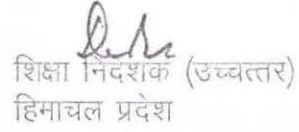 शिक्षा निदेशक (उच्चत्तर)
हिमाचल प्रदेश